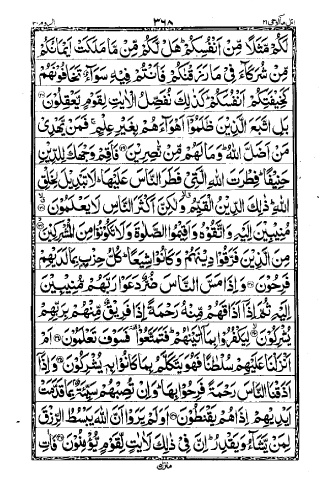 اتل ما اوحی ٢١ ٣٦٨ الروم ٣٠
لَكُمْ مَّثَلًا مِّنْ اَنْفُسِكُمْ ؕ هَلْ لَّكُمْ مِّنْ مَّا مَلَكَتْ اَيْمَانُكُمْ
مِّنْ شُرَكَآءَ فِيْ مَا رَزَقْنٰكُمْ فَاَنْتُمْ فِيْهِ سَوَآءٌ تَخَافُوْنَهُمْ
كَخِيْفَتِكُمْ اَنْفُسَكُمْ ؕ كَذٰلِكَ نُفَصِّلُ الْاٰيٰتِ لِقَوْمٍ يَّعْقِلُوْنَ
بَلِ اتَّبَعَ الَّذِيْنَ ظَلَمُوْۤا اَهْوَآءَهُمْ بِغَيْرِ عِلْمٍ ۚ فَمَنْ يَّهْدِيْ
مَنْ اَضَلَّ اللّٰهُ ؕ وَمَا لَهُمْ مِّنْ نّٰصِرِيْنَ فَاَقِمْ وَجْهَكَ لِلدِّيْنِ
حَنِيْفًا ؕ فِطْرَتَ اللّٰهِ الَّتِيْ فَطَرَ النَّاسَ عَلَيْهَا ؕ لَا تَبْدِيْلَ لِخَلْقِ
اللّٰهِ ؕ ذٰلِكَ الدِّيْنُ الْقَيِّمُ ۙ وَلٰكِنَّ اَكْثَرَ النَّاسِ لَا يَعْلَمُوْنَ
مُنِيْبِيْنَ اِلَيْهِ وَاتَّقُوْهُ وَاَقِيْمُوا الصَّلٰوةَ وَلَا تَكُوْنُوْا مِنَ الْمُشْرِكِيْنَ
مِنَ الَّذِيْنَ فَرَّقُوْا دِيْنَهُمْ وَكَانُوْا شِيَعًا ؕ كُلُّ حِزْبٍۭ بِمَا لَدَيْهِمْ
فَرِحُوْنَ وَاِذَا مَسَّ النَّاسَ ضُرٌّ دَعَوْا رَبَّهُمْ مُّنِيْبِيْنَ
اِلَيْهِ ثُمَّ اِذَاۤ اَذَاقَهُمْ مِّنْهُ رَحْمَةً اِذَا فَرِيْقٌ مِّنْهُمْ بِرَبِّهِمْ
يُشْرِكُوْنَ لِيَكْفُرُوْا بِمَاۤ اٰتَيْنٰهُمْ ؕ فَتَمَتَّعُوْا ٝ فَسَوْفَ تَعْلَمُوْنَ اَمْ
اَنْزَلْنَا عَلَيْهِمْ سُلْطٰنًا فَهُوَ يَتَكَلَّمُ بِمَا كَانُوْا بِهٖ يُشْرِكُوْنَ وَاِذَاۤ
اَذَقْنَا النَّاسَ رَحْمَةً فَرِحُوْا بِهَا ؕ وَاِنْ تُصِبْهُمْ سَيِّئَةٌۢ بِمَا قَدَّمَتْ
اَيْدِيْهِمْ اِذَا هُمْ يَقْنَطُوْنَ اَوَلَمْ يَرَوْا اَنَّ اللّٰهَ يَبْسُطُ الرِّزْقَ
لِمَنْ يَّشَآءُ وَيَقْدِرُ ؕ اِنَّ فِيْ ذٰلِكَ لَاٰيٰتٍ لِّقَوْمٍ يُّؤْمِنُوْنَ فَاٰتِ